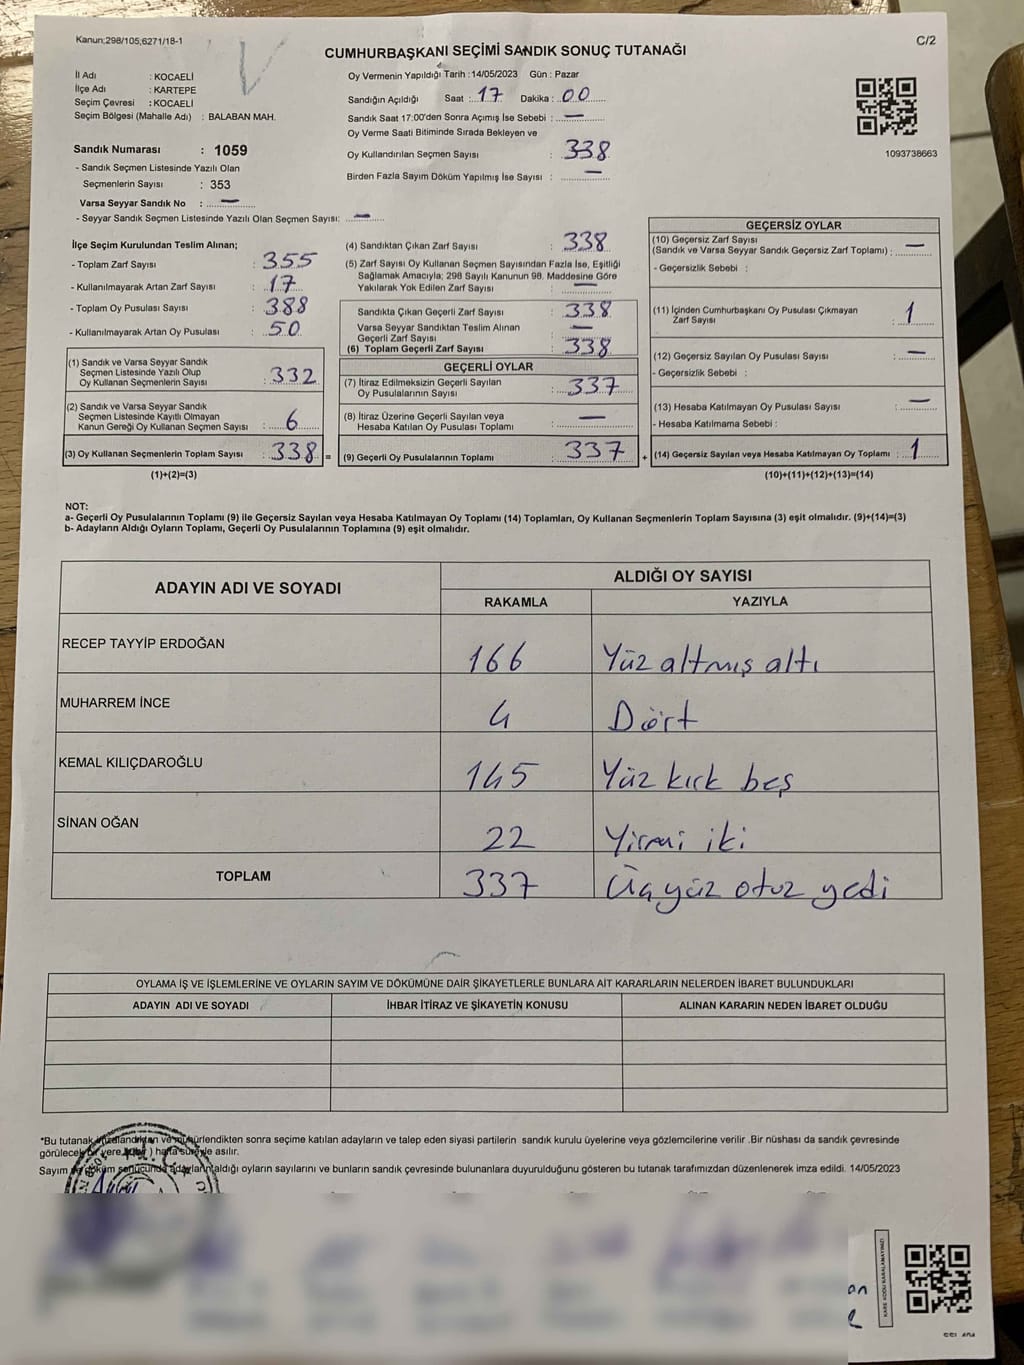 Kanun;298/105;6271/18-1
C/2
CUMHURBAŞKANI SEÇİMİ SANDIK SONUÇ TUTANAĞI
İl Adı : KOCAELİ
İlçe Adı : KARTEPE
Seçim Çevresi : KOCAELİ
Seçim Bölgesi (Mahalle Adı) : BALABAN MAH.
Oy Vermenin Yapıldığı Tarih :14/05/2023 Gün : Pazar
Sandığın Açıldığı Saat : 17 Dakika : 00
Sandık Saat 17.00'den Sonra Açımış İse Sebebi : —
Oy Verme Saati Bitiminde Sırada Bekleyen ve
Oy Kullandırılan Seçmen Sayısı : 338
Birden Fazla Sayım Döküm Yapılmış İse Sayısı : —
1093738663
Sandık Numarası : 1059
- Sandık Seçmen Listesinde Yazılı Olan
Seçmenlerin Sayısı : 353
Varsa Seyyar Sandık No : —
- Seyyar Sandık Seçmen Listesinde Yazılı Olan Seçmen Sayısı: —
İlçe Seçim Kurulundan Teslim Alınan;
- Toplam Zarf Sayısı : 355
- Kullanılmayarak Artan Zarf Sayısı : 17
- Toplam Oy Pusulası Sayısı : 388
- Kullanılmayarak Artan Oy Pusulası : 50
(1) Sandık ve Varsa Seyyar Sandık
Seçmen Listesinde Yazılı Olup
Oy Kullanan Seçmenlerin Sayısı : 332
(2) Sandık ve Varsa Seyyar Sandık
Seçmen Listesinde Kayıtlı Olmayan
Kanun Gereği Oy Kullanan Seçmen Sayısı : 6
(3) Oy Kullanan Seçmenlerin Toplam Sayısı : 338 =
(1)+(2)=(3)
(4) Sandıktan Çıkan Zarf Sayısı : 338
(5) Zarf Sayısı Oy Kullanan Seçmen Sayısından Fazla İse, Eşitliği
Sağlamak Amacıyla; 298 Sayılı Kanunun 98. Maddesine Göre
Yakılarak Yok Edilen Zarf Sayısı : —
Sandıkta Çıkan Geçerli Zarf Sayısı : 338
Varsa Seyyar Sandıktan Teslim Alınan
Geçerli Zarf Sayısı : —
(6) Toplam Geçerli Zarf Sayısı : 338
GEÇERLİ OYLAR
(7) İtiraz Edilmeksizin Geçerli Sayılan
Oy Pusulalarının Sayısı : 337
(8) İtiraz Üzerine Geçerli Sayılan veya
Hesaba Katılan Oy Pusulası Toplamı : —
(9) Geçerli Oy Pusulalarının Toplamı : 337 +
GEÇERSİZ OYLAR
(10) Geçersiz Zarf Sayısı
(Sandık ve Varsa Seyyar Sandık Geçersiz Zarf Toplamı) : —
- Geçersizlik Sebebi :
(11) İçinden Cumhurbaşkanı Oy Pusulası Çıkmayan
Zarf Sayısı : 1
(12) Geçersiz Sayılan Oy Pusulası Sayısı : —
- Geçersizlik Sebebi :
(13) Hesaba Katılmayan Oy Pusulası Sayısı : —
- Hesaba Katılmama Sebebi :
(14) Geçersiz Sayılan veya Hesaba Katılmayan Oy Toplamı : 1
(10)+(11)+(12)+(13)=(14)
NOT:
a- Geçerli Oy Pusulalarının Toplamı (9) ile Geçersiz Sayılan veya Hesaba Katılmayan Oy Toplamı (14) Toplamları, Oy Kullanan Seçmenlerin Toplam Sayısına (3) eşit olmalıdır. (9)+(14)=(3)
b- Adayların Aldığı Oyların Toplamı, Geçerli Oy Pusulalarının Toplamına (9) eşit olmalıdır.
ADAYIN ADI VE SOYADI
ALDIĞI OY SAYISI
RAKAMLA YAZIYLA
RECEP TAYYİP ERDOĞAN 166 Yüz altmış altı
MUHARREM İNCE 4 Dört
KEMAL KILIÇDAROĞLU 145 Yüz kırk beş
SİNAN OĞAN 22 Yirmi iki
TOPLAM 337 Üçyüz otuz yedi
OYLAMA İŞ VE İŞLEMLERİNE VE OYLARIN SAYIM VE DÖKÜMÜNE DAİR ŞİKAYETLERLE BUNLARA AİT KARARLARIN NELERDEN İBARET BULUNDUKLARI
ADAYIN ADI VE SOYADI İHBAR İTİRAZ VE ŞİKAYETİN KONUSU ALINAN KARARIN NEDEN İBARET OLDUĞU
*Bu tutanak imzalandıktan ve mühürlendikten sonra seçime katılan adayların ve talep eden siyasi partilerin sandık kurulu üyelerine veya gözlemcilerine verilir .Bir nüshası da sandık çevresinde
görülecek bir yere ) hafta süreyle asılır.
Sayım ve döküm sonucunda adayların aldığı oyların sayılarını ve bunların sandık çevresinde bulunanlara duyurulduğunu gösteren bu tutanak tarafımızdan düzenlenerek imza edildi. 14/05/2023
KARE KODU KARALAMAYINIZ!